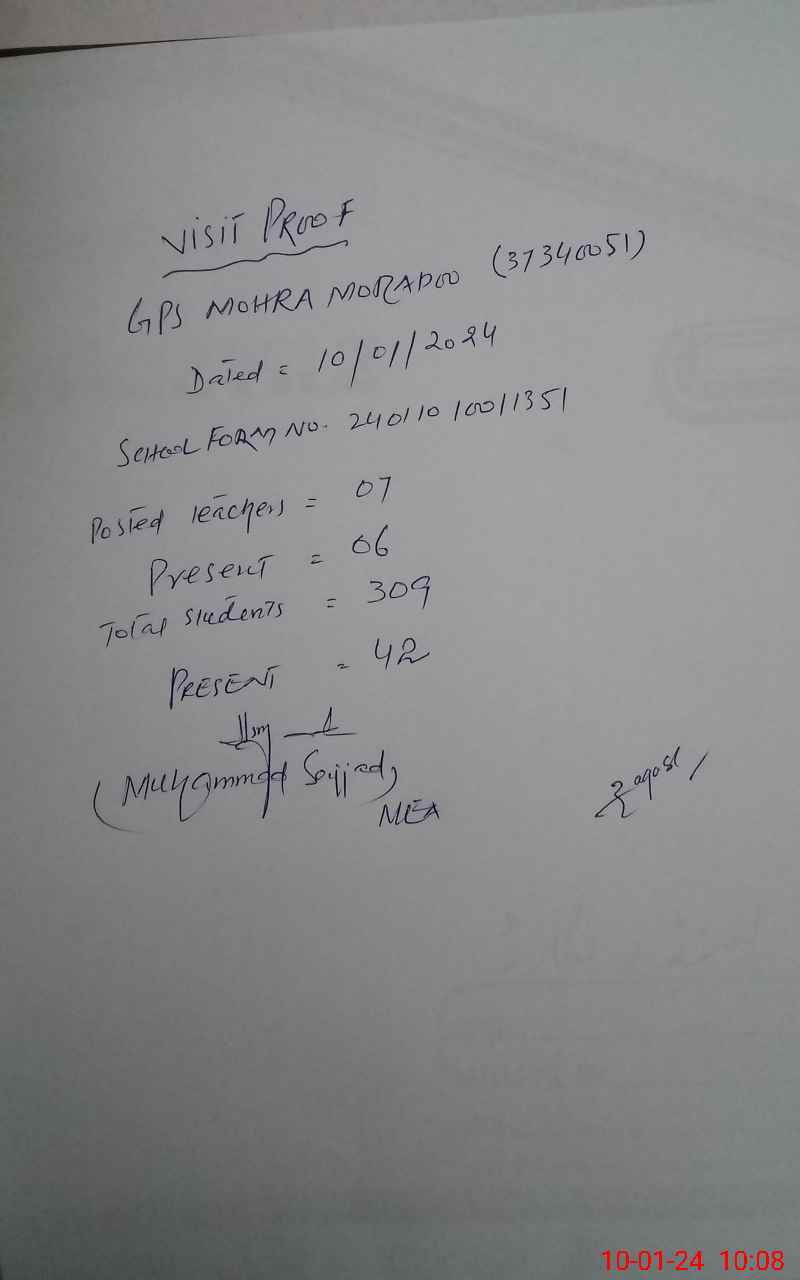 VISIT PROOF
GPS MOHRA MORADOO (37340051)
Dated = 10/01/2024
SCHOOL FORM NO. 24011010011351
Posted teachers = 07
Present = 06
Total students = 309
PRESENT = 42
(Muhammad Sajjad)
MEA
10-01-24 10:08